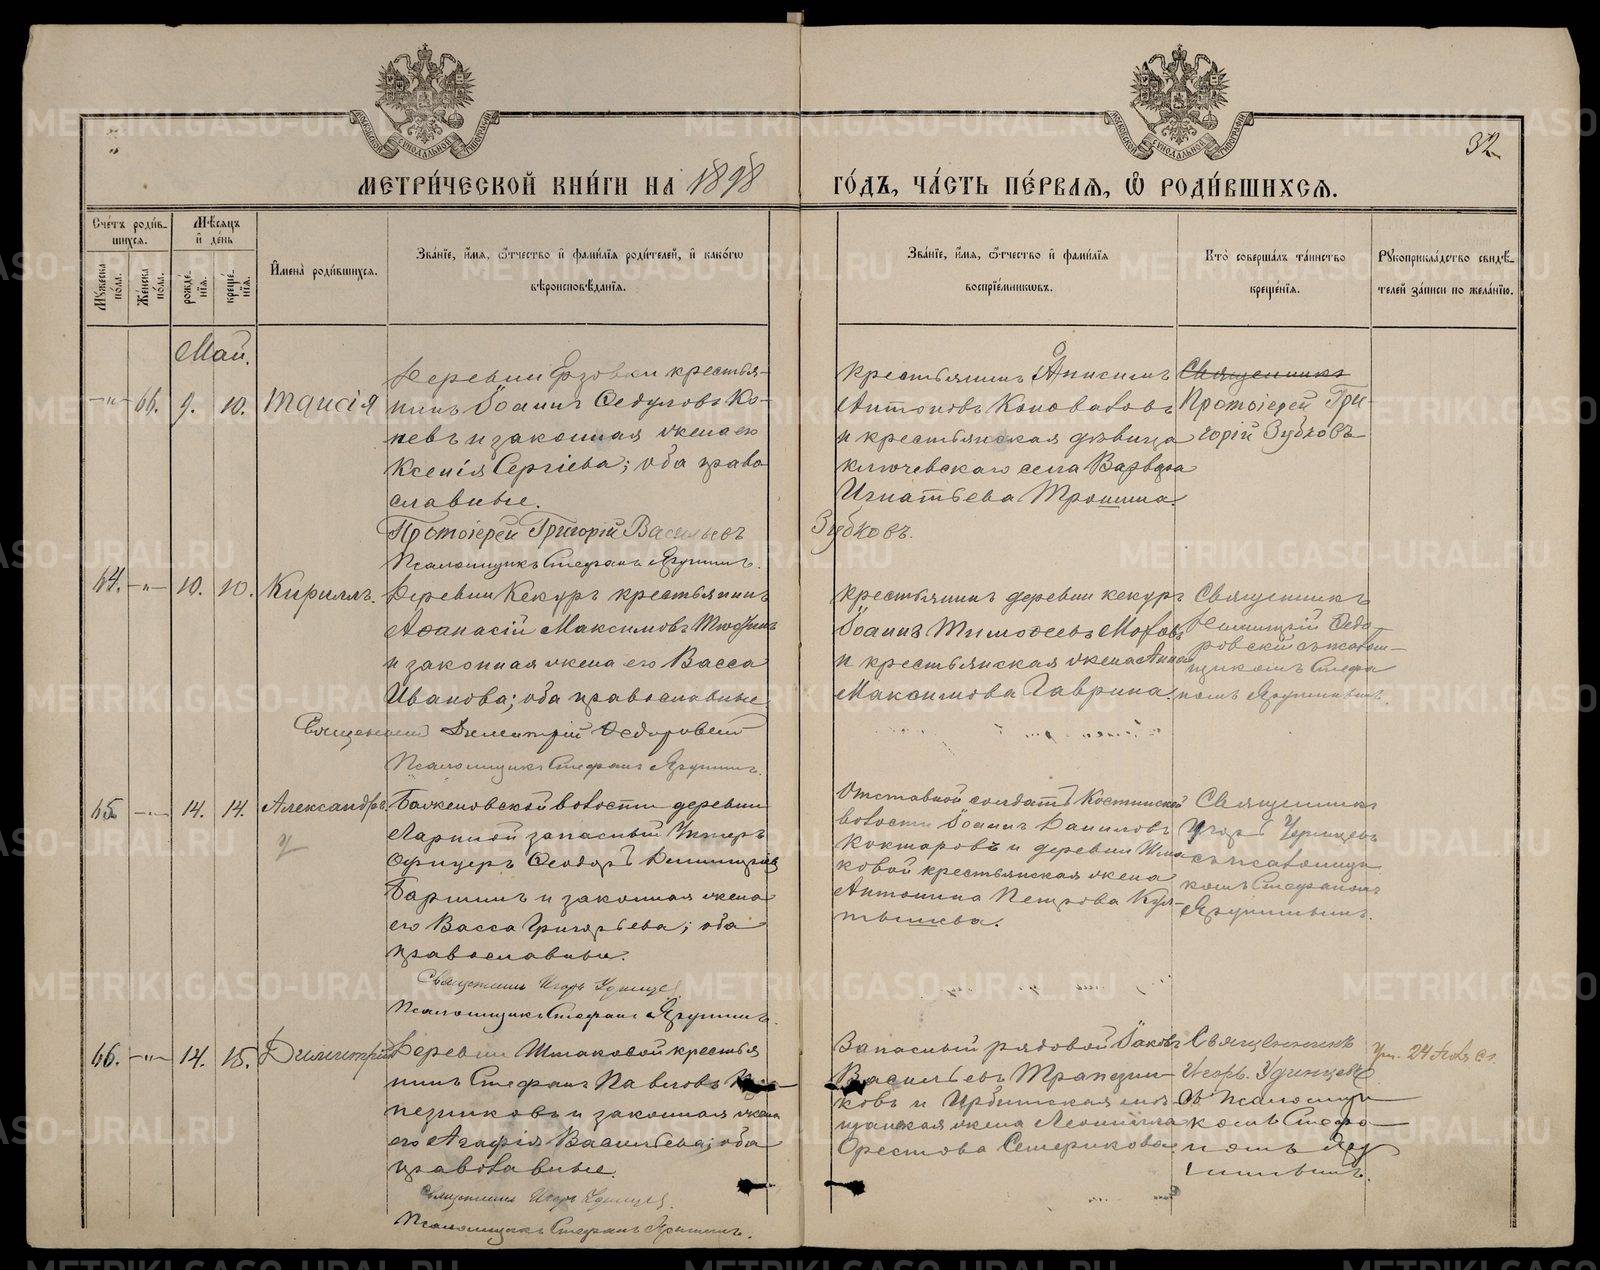 32
МЕТРИ́ЧЕСКОЙ КНИ́ГИ НА 1898 ГО́ДЪ, ЧА́СТЬ ПЕ́РВАЯ, Ѡ РОДИ́ВШИХСЯ.
Сче́тъ роди́в-
шихся.
Мѣ́сяцъ
и де́нь
Мꙋ́жеска по́ла.
Же́нска по́ла.
рожде́-
нїя.
креще́-
нїя.
И҆мена̀ роди́вшихся.
Зва́нїе, и҆́мя, ѻ҆́тчество и҆ фами́лїя роди́телей, и҆ како́гѡ
вѣроисповѣ́данїя.
Зва́нїе, и҆́мя, ѻ҆́тчество и҆ фами́лїя
воспрїе́мникѡвъ.
Кто̀ соверша́лъ та́инство
креще́нїя.
Рꙋкоприкла́дство свидѣ́-
телей за́писи по жела́нїю.
Май.
-"- 66. 9. 10. Таисія
Деревни Ерзовки крестья-
нинъ Іоаннъ Седуловъ Ко-
невъ и законная жена его
Ксенія Сергіева; оба право
славные.
Протоіерей Григорій Васильевъ Зубковъ.
Псаломщикъ Стефанъ Ярушинъ.
Крестьянинъ Анисимъ
Антоновъ Коноваловъ
и крестьянская дѣвица
ключевскаго села Варвара
Игнатьева Тронина
Священникъ
Протоіерей Гри-
горій Зубковъ
64. -"- 10. 10. Кириллъ.
Деревни Кекуръ крестьянинъ
Аѳанасій Максимовъ
и законная жена его Васса
Иванова; оба православные
Священникъ Димитрій Ѳедоровскій
Псаломщикъ Стефанъ Ярушинъ.
Крестьянинъ деревни Кекуръ
Іоаннъ Тимоѳеевъ
и крестьянская жена Анна
Максимова Гаврина.
Священникъ
Димитрій Ѳедо-
ровскій съ псаломщ-
щикомъ Стефа
номъ Ярушинымъ.
65. -"- 14. 14. Александръ.
волости деревни
запасный Унтеръ
Офицеръ Ѳеодоръ Димитріевъ
и законная жена
его Васса Григорьева; оба
православные.
Священникъ Игорь Удинцевъ
Псаломщикъ Стефанъ Ярушинъ.
Отставной солдатъ Костинской
волости Іоаннъ Даниловъ
Кокшаровъ и деревни Шма
ковой крестьянская жена
Антонина Петрова Кул-
тышева.
Священникъ
Игорь Удинцевъ
съ псаломщи
комъ Стефаномъ
Ярушинымъ.
66. -"- 14. 15. Димитрій
Деревни Шмаковой крестья
нинъ Стефанъ Павловъ
и законная жена
его Агафія Васильева; оба
православные.
Священникъ Игорь Удинцевъ
Псаломщикъ Стефанъ Ярушинъ.
Запасный рядовой Іаковъ
Васильевъ Трапезни-
ковъ и Ирбитская мѣ
щанская жена Леонилла
Орестова Семерикова
Священникъ
Игорь Удинцевъ
съ псаломщи
комъ Стефа-
номъ Яру
шинымъ.
METRIKI.GASO-URAL.RU